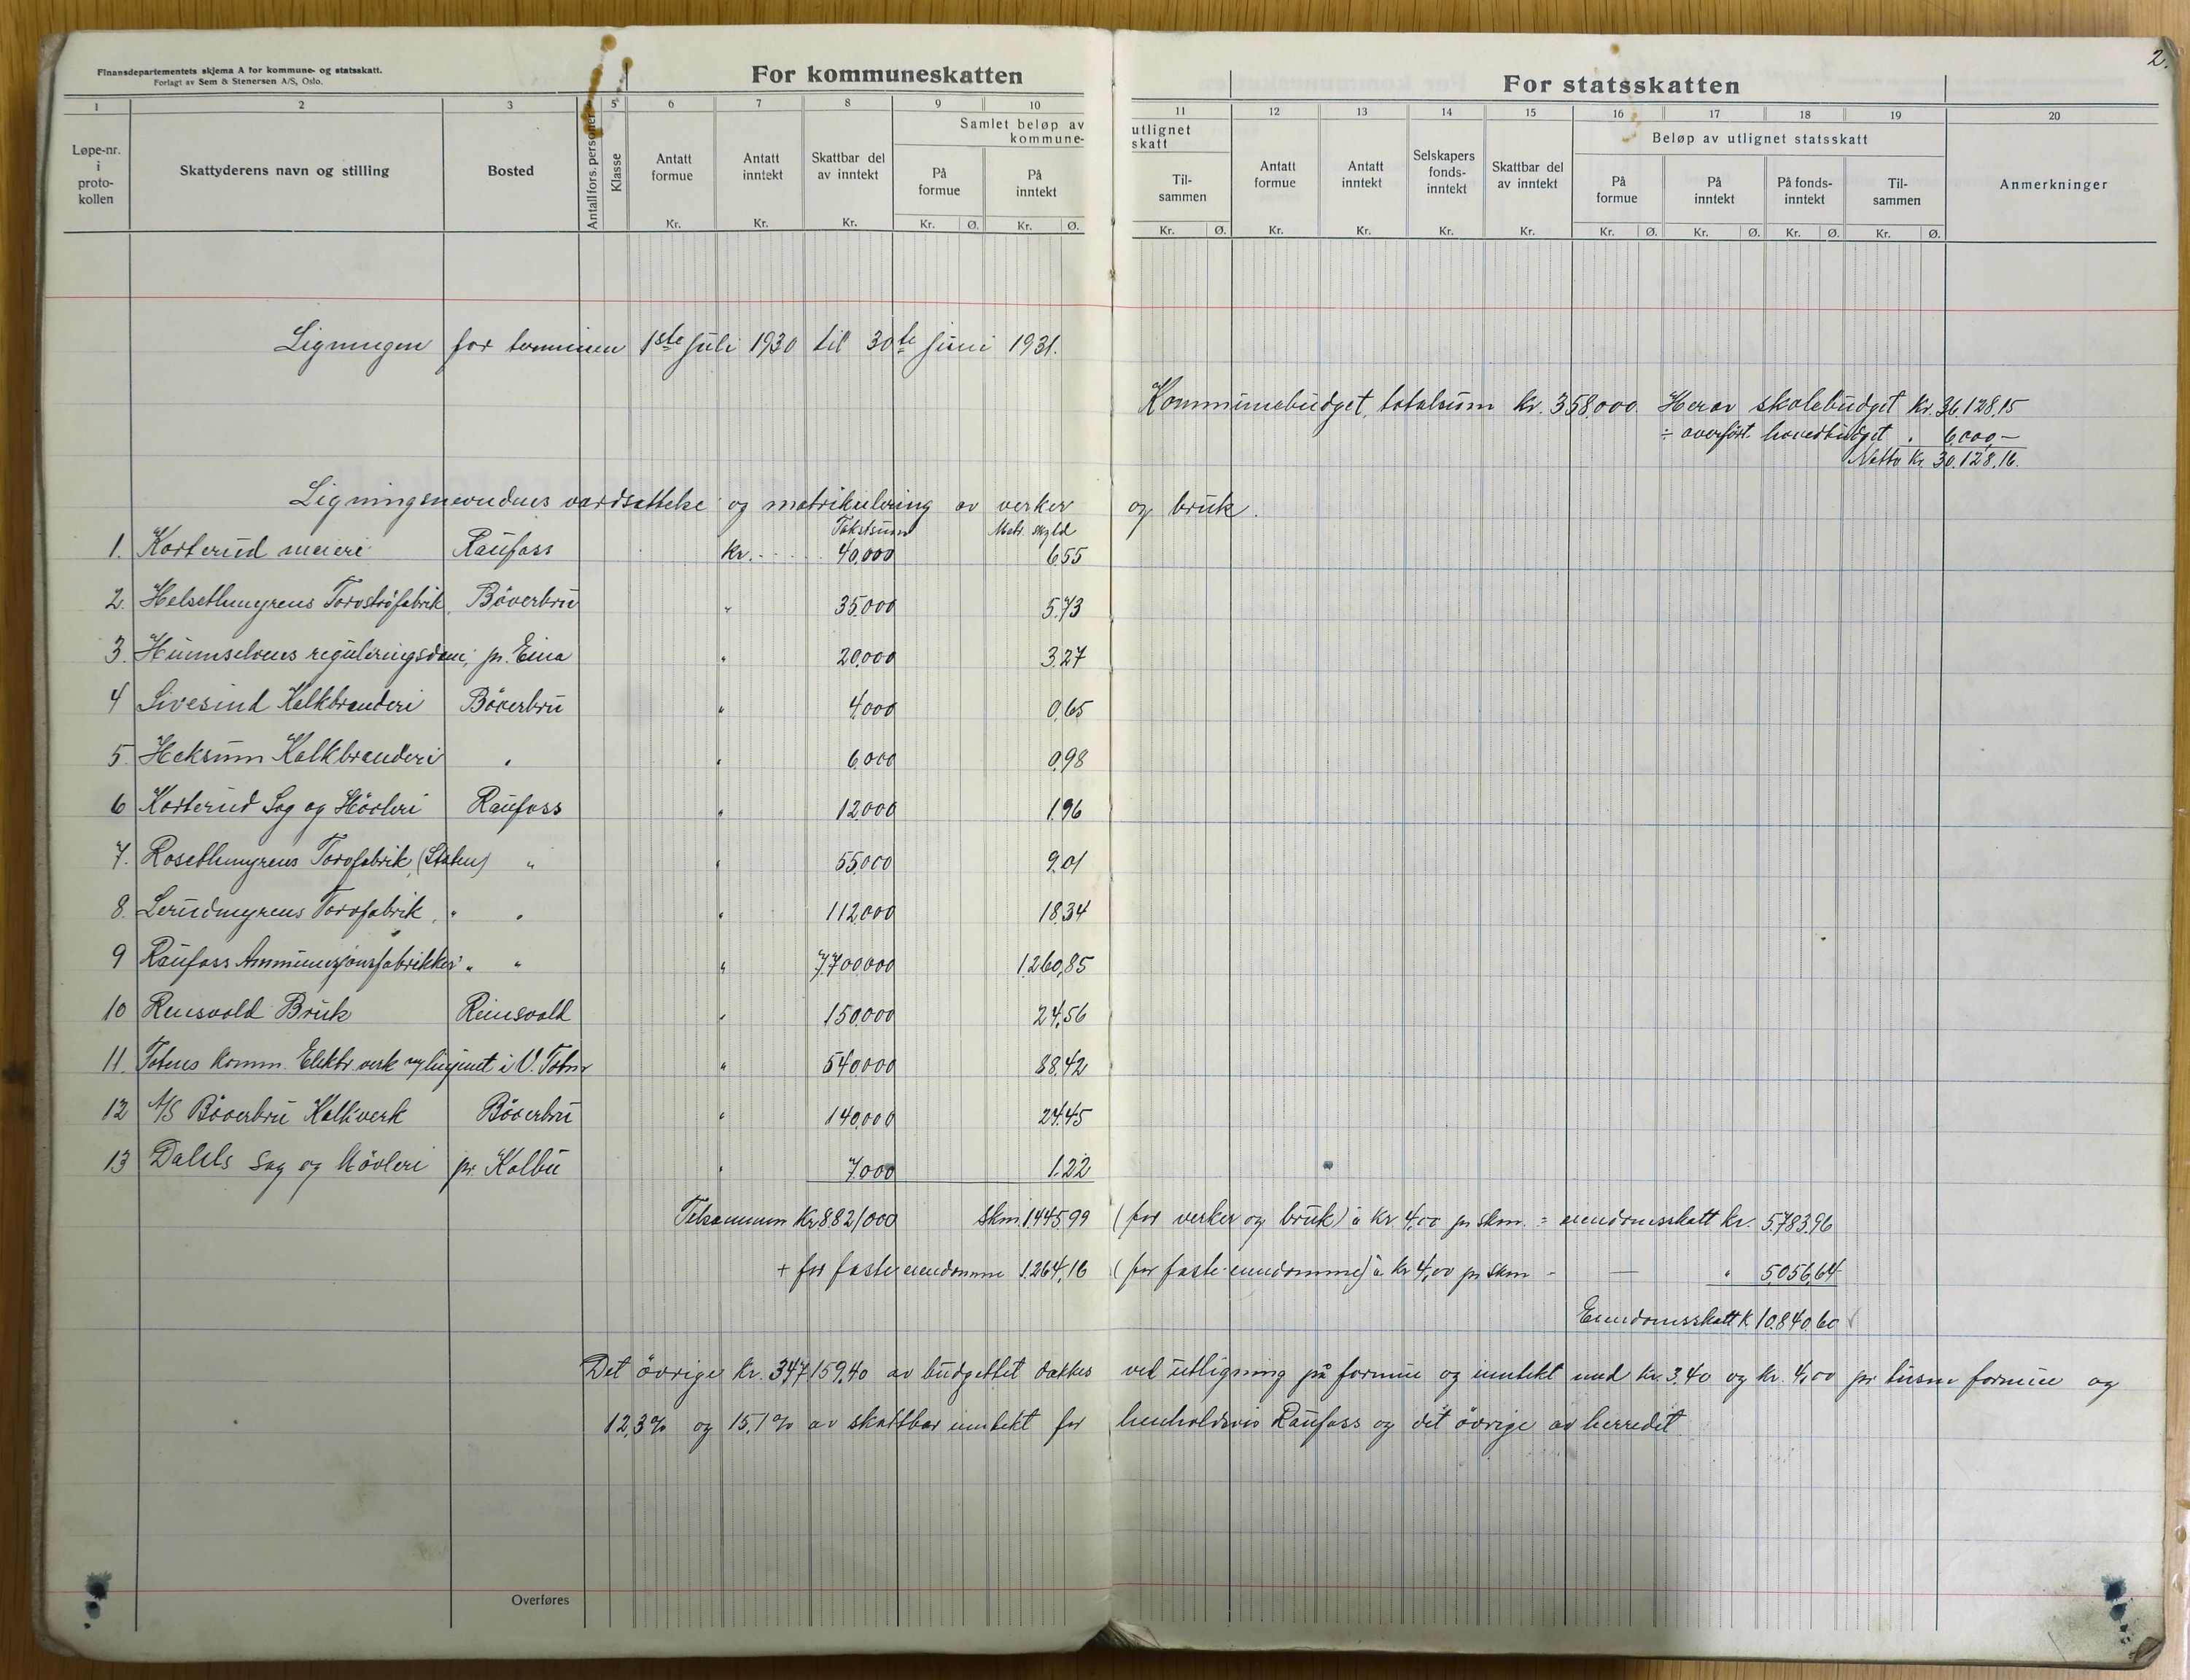 2.
Finansdepartementets skjema A for kommune- og statsskatt.
Forlagt av Sem & Stenersen A/S, Oslo.
For kommuneskatten
For statsskatten
1 2 3 5 6 7 8 9 10 11 12 13 14 15 16 17 18 19 20
Løpe-nr. i proto-kollen
Skattyderens navn og stilling
Bosted
Antall fors. personer
Klasse
Antatt formue Kr.
Antatt inntekt Kr.
Skattbar del av inntekt Kr.
Samlet beløp av utlignet kommune-skatt
På formue Kr. Ø.
På inntekt Kr. Ø.
Til-sammen Kr. Ø.
Antatt formue Kr.
Antatt inntekt Kr.
Selskapers fonds-inntekt Kr.
Skattbar del av inntekt Kr.
Beløp av utlignet statsskatt
På formue Kr. Ø.
På inntekt Kr. Ø.
På fonds-inntekt Kr. Ø.
Til-sammen Kr. Ø.
Anmerkninger
Ligningen for terminen 1ste juli 1930 til 30te juni 1931.
Kommunebudget, totalsum kr. 358,000. Herav skolebudget kr. 36.128,15
÷ overført hovedbudget " 6,000,-
Netto kr. 30.128,16.
Ligningsnevndens verdsettelse og matrikulering av verker og bruk.
Takstsum Matr. skyld
1. Korterud meieri Raufoss Kr. 40,000 6,55
2. Helsethmyrens Torvstrøfabrik, Bøverbru " 35,000 5,73
3. Hunnselvens reguleringsdam, pr. Eina " 20,000 3,27
4 Sivesind Kalkbrenderi Bøverbru " 4,000 0,65
5 Heksum Kalkbrenderi " " 6,000 0,98
6 Korterud Sag og Høvleri Raufoss " 12,000 1,96
7. Rosethmyrens Torvfabrik, (Staten) " " 55,000 9,01
8. Lerudmyrens Torvfabrik, " " " 112,000 18,34
9 Raufoss Ammunisjonsfabrikker " " " 7,700,000 1,260,85
10 Reinsvold Bruk Reinsvold " 150,000 24,56
11. Totens komm. Elektr. verk og linjenet i V. Toten " 540,000 88,42
12 A/S Bøverbru Kalkverk Bøverbru " 140,000 24,45
13 Dahls Sag og Høvleri pr. Kolbu " 7,000 1,22
Tilsammen Kr 8821000 skm. 1445,99 (for verker og bruk) à kr. 4,00 pr. skm. = eiendomsskatt kr. 5,783,96
+ for faste eiendomme 1.264,16 (for faste eiendomme) à kr 4,00 pr skm - — " 5,056,64
Eiendomsskatt k 10.840,60
Det øvrige kr. 347.159,40 av budgettet dækkes ved utligning på formue og inntekt med kr. 3,40 og kr. 4,00 pr. tusen formue og
12,3% og 15,1% av skattbar inntekt for henholdsvis Raufoss og det øvrige av herredet.
Overføres